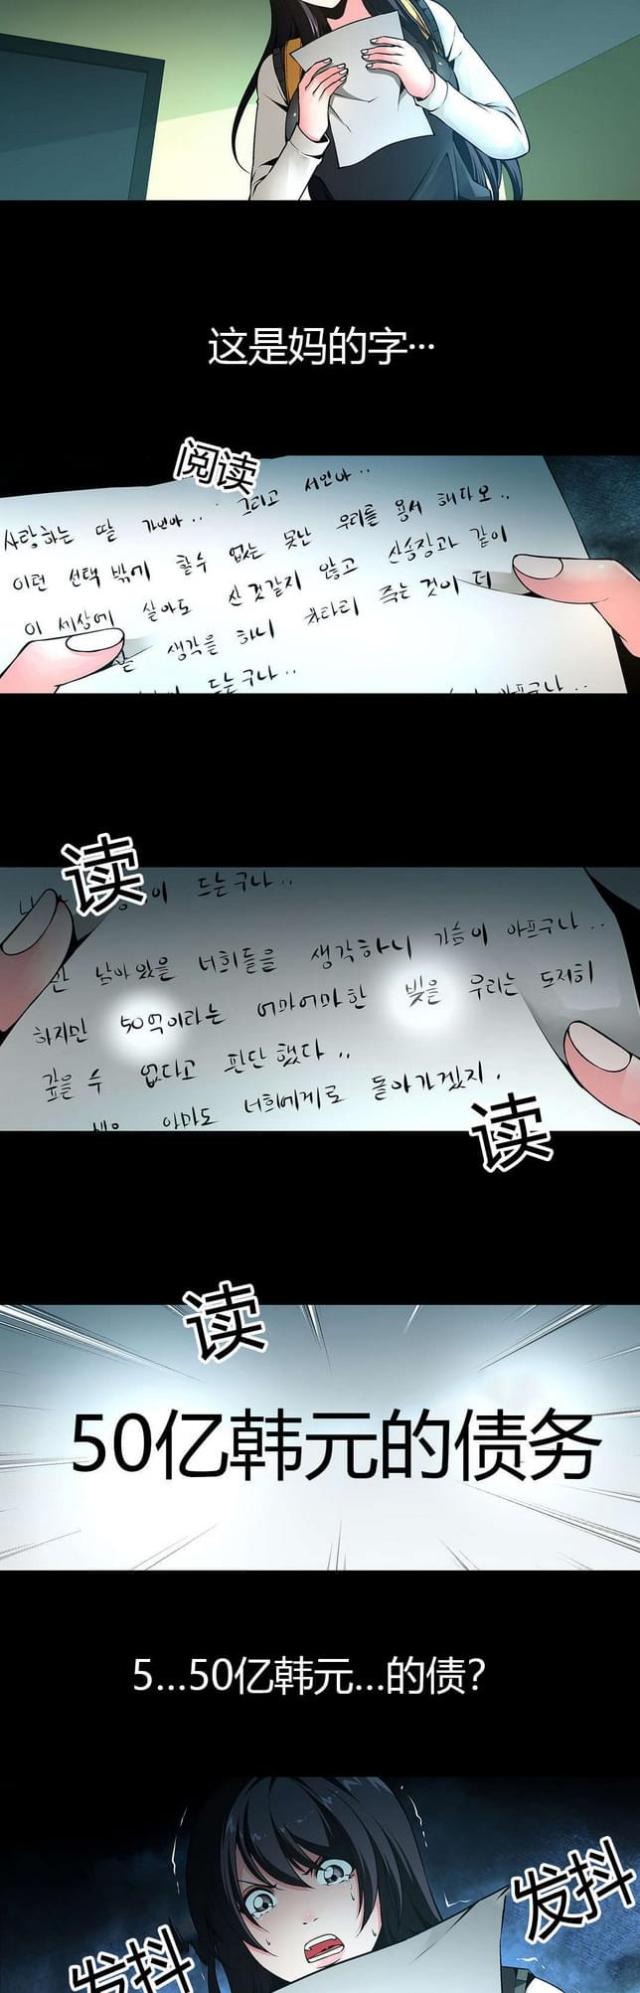 这是妈的字…
阅读
사랑하는 딸 가인아.. 그리고 서인아..
이런 선택 밖에 할수 없는 못난 우리를 용서 해다오..
이 세상에 살아도 산것같지 않고 산송장과 같이
생각을 하니 차라리 죽는 것이 더
드는구나..
아프구나..
读
이 드는구나..
남아있을 너희들을 생각하니 가슴이 아프구나..
하지만 50억이라는 어마어마한 빚을 우리는 도저히
갚을 수 없다고 판단했다..
아마도 너희에게로 돌아가겠지.
读
读
50亿韩元的债务
5...50亿韩元...的债?
发抖
发抖